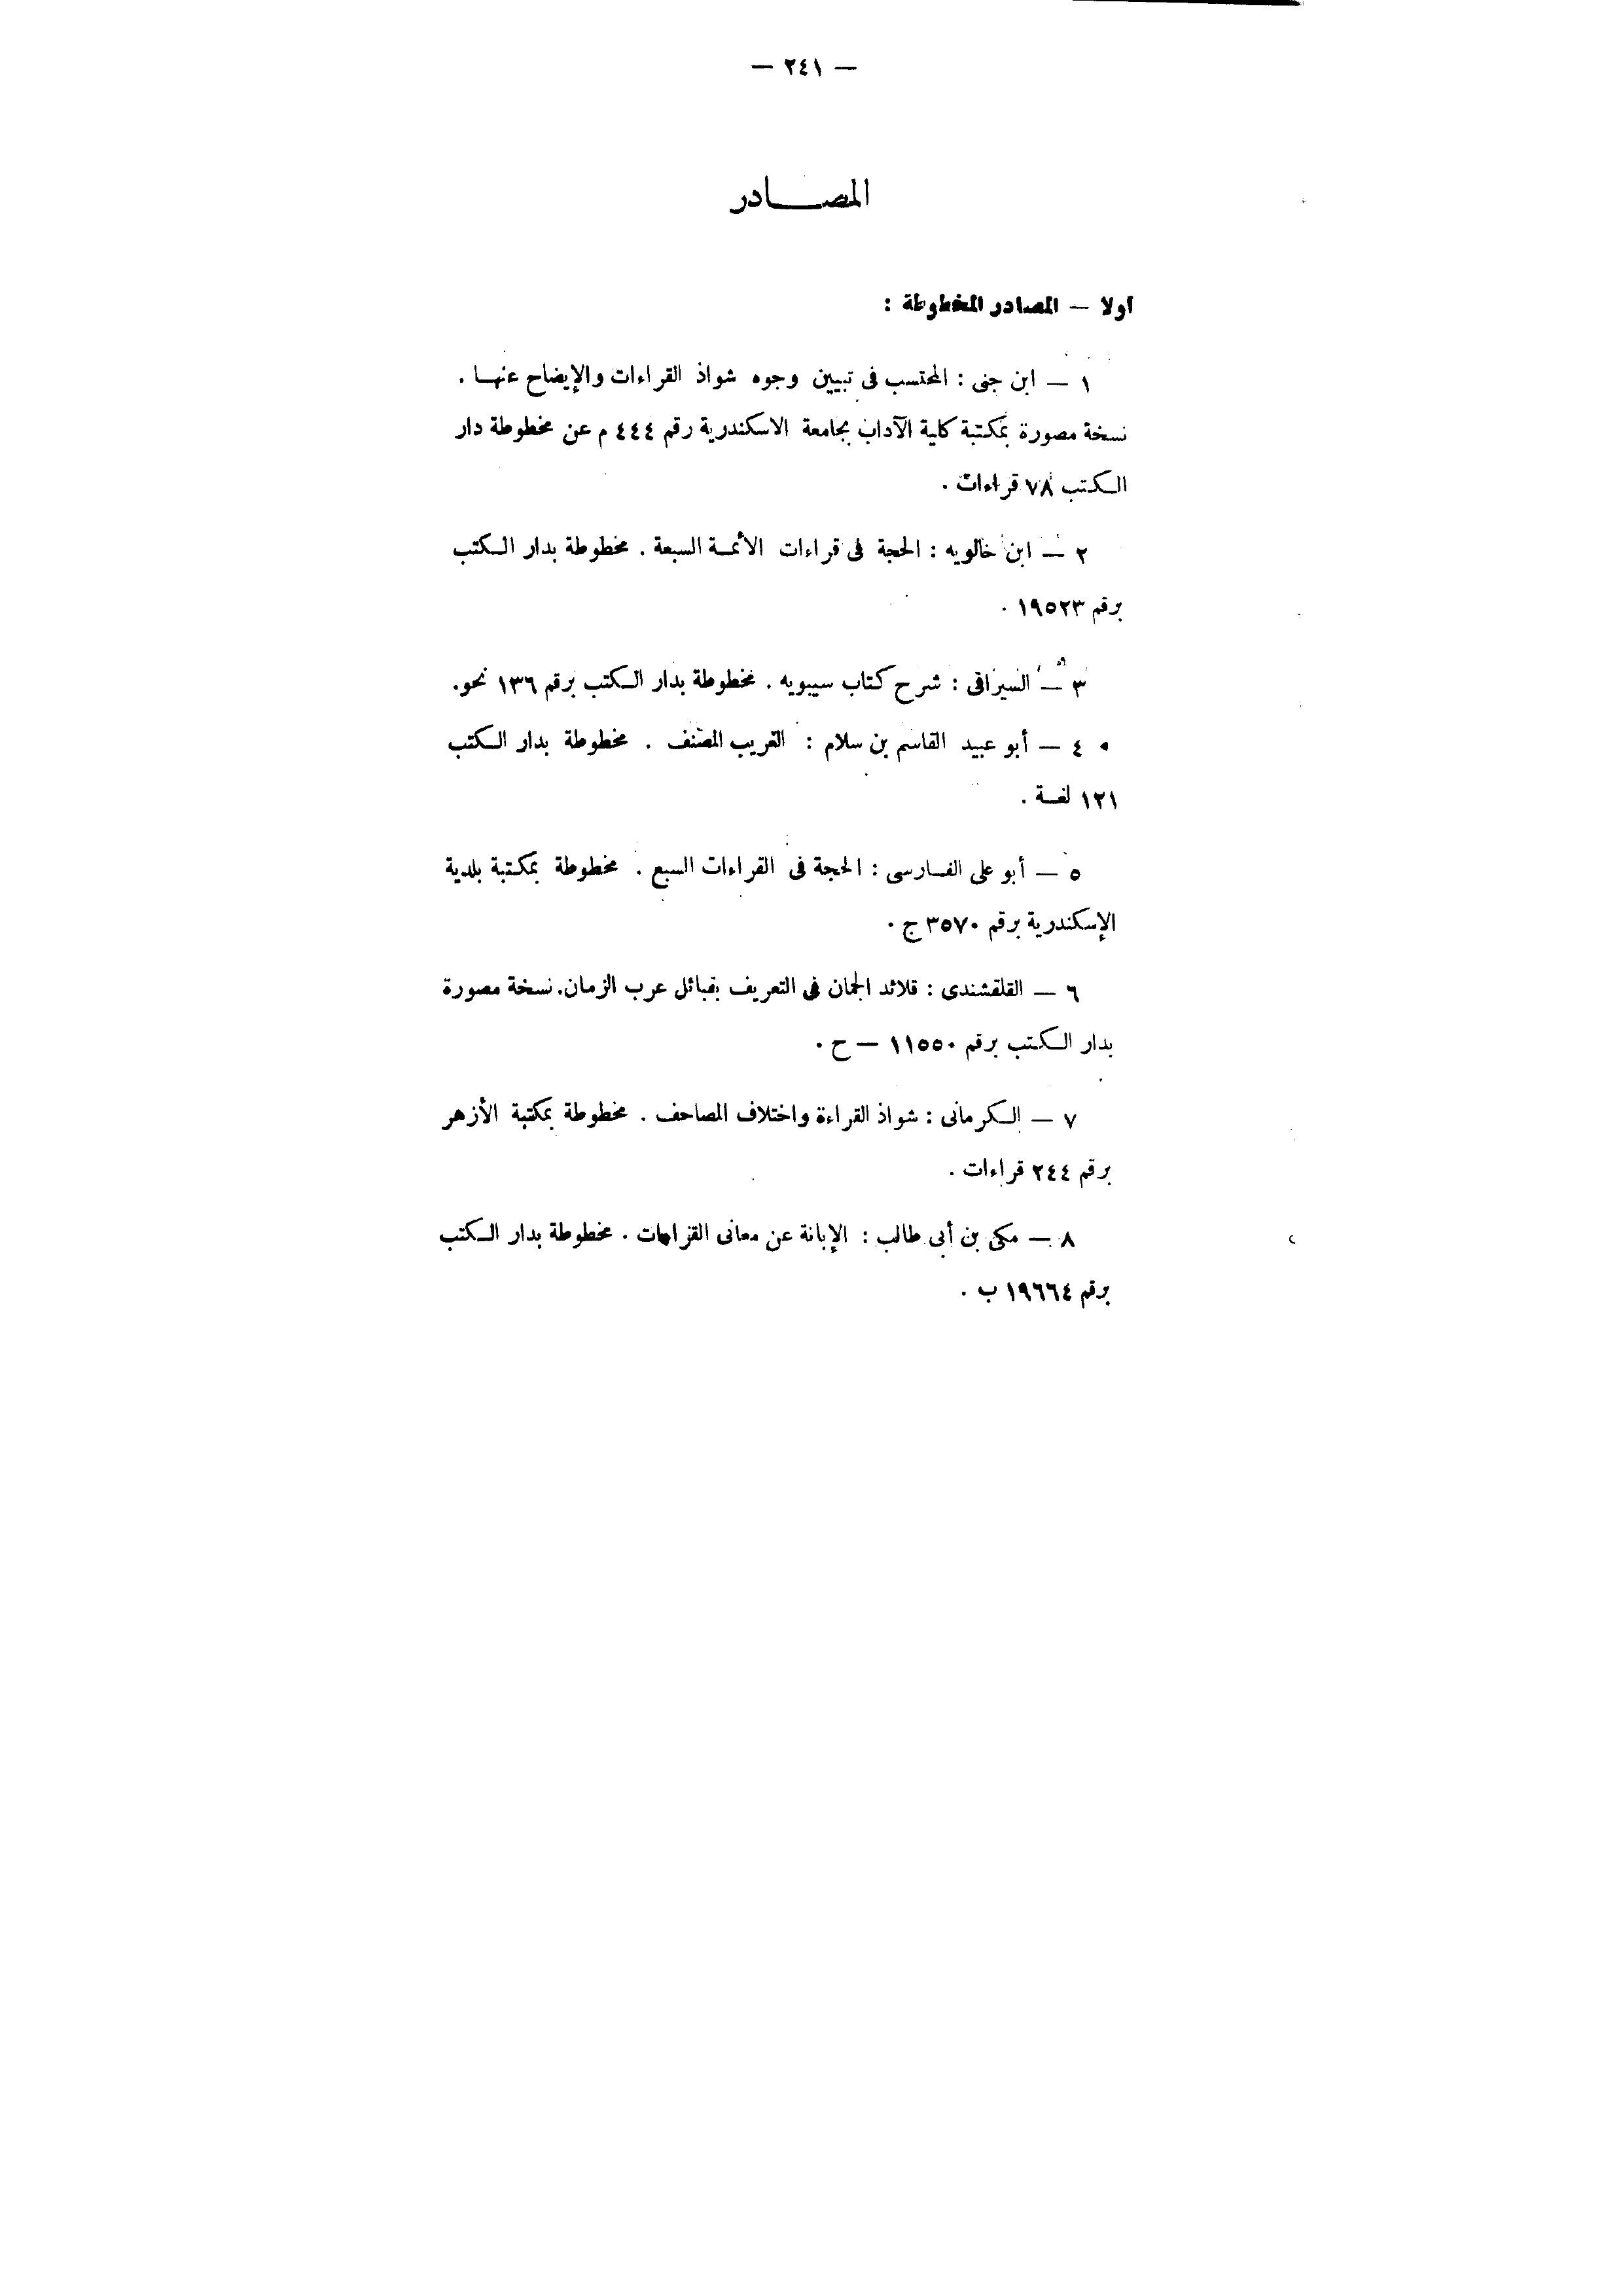 — ٢٤١ —
المصادر
أولا — المصادر المخطوطة :
١ — ابن جنى : المحتسب فى تبيين وجوه شواذ القراءات والإيضاح عنها .
نسخة مصورة بمكتبة كلية الآداب بجامعة الاسكندرية رقم ٤٤٤ م عن مخطوطة دار
الكتب ٧٨ قراءات .
٢ — ابن خالويه : الحجة فى قراءات الأئمة السبعة . مخطوطة بدار الكتب
برقم ١٩٥٢٣ .
٣ — السيرافى : شرح كتاب سيبويه . مخطوطة بدار الكتب برقم ١٣٦ نحو .
٤ — أبو عبيد القاسم بن سلام : الغريب المصنف . مخطوطة بدار الكتب
١٢١ لغة .
٥ — أبو على الفارسى : الحجة فى القراءات السبع . مخطوطة بمكتبة بلدية
الإسكندرية برقم ٣٥٧٠ ج .
٦ — القلقشندى : قلائد الجمان فى التعريف بقبائل عرب الزمان . نسخة مصورة
بدار الكتب برقم ١١٥٥٠ — ح .
٧ — الكرمانى : شواذ القراءة واختلاف المصاحف . مخطوطة بمكتبة الأزهر
برقم ٢٤٤ قراءات .
٨ — مكى بن أبى طالب : الإبانة عن معانى القراءات . مخطوطة بدار الكتب
برقم ١٩٦٦٤ ب .